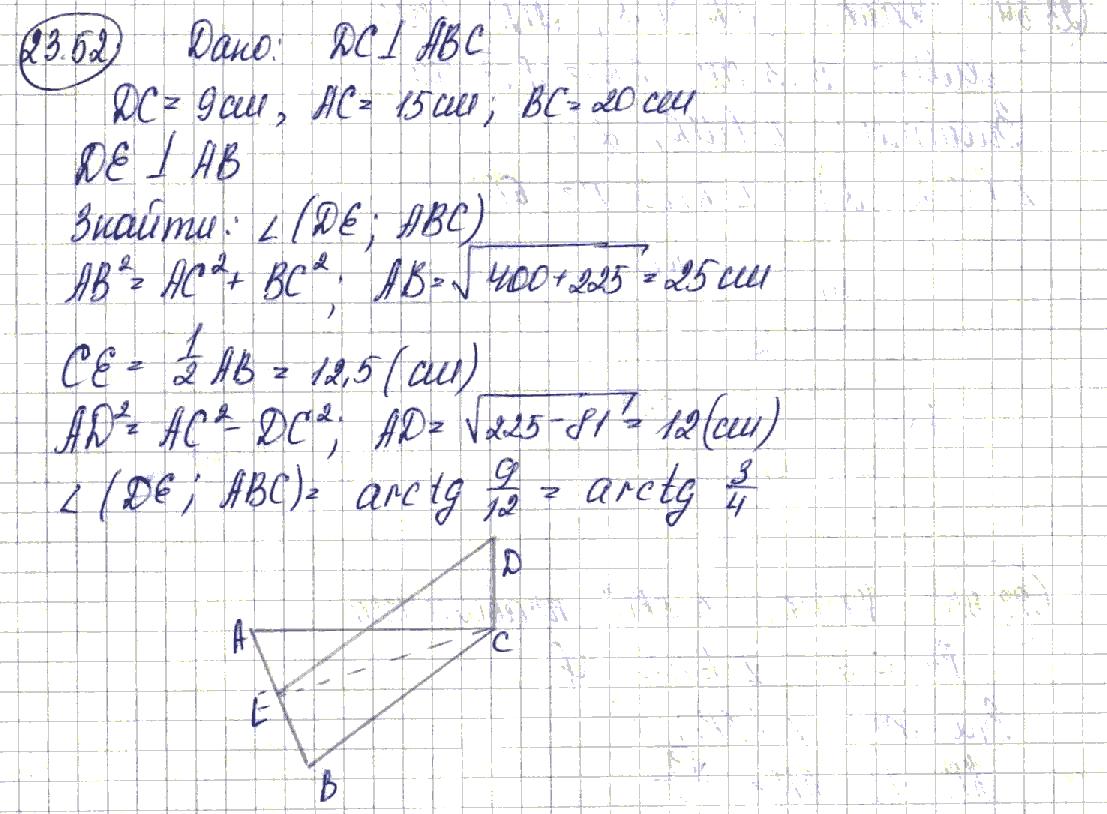 23.52 Дано: DC⊥ ABC
DC = 9 см, AC = 15 см; BC = 20 см
DE ⊥ AB
Знайти: ∠(DE; ABC)
AB² = AC² + BC²; AB = √400 + 225 = 25 см
CE = 1/2 AB = 12,5 (см)
AD² = AC² - DC²; AD = √225 - 81 = 12 (см)
∠(DE; ABC) = arctg 9/12 = arctg 3/4
D
A
C
E
B